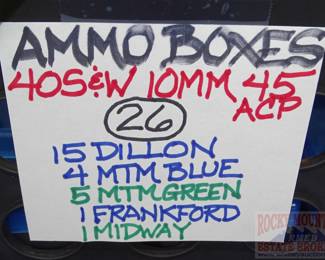 AMMO BOXES
40S&W 10MM 45
ACP
26
15 DILLON
4 MTM BLUE
5 MTM GREEN
1 FRANKFORD
1 MIDWAY
ROCKY MOUNTAIN
ESTATE BROKERS